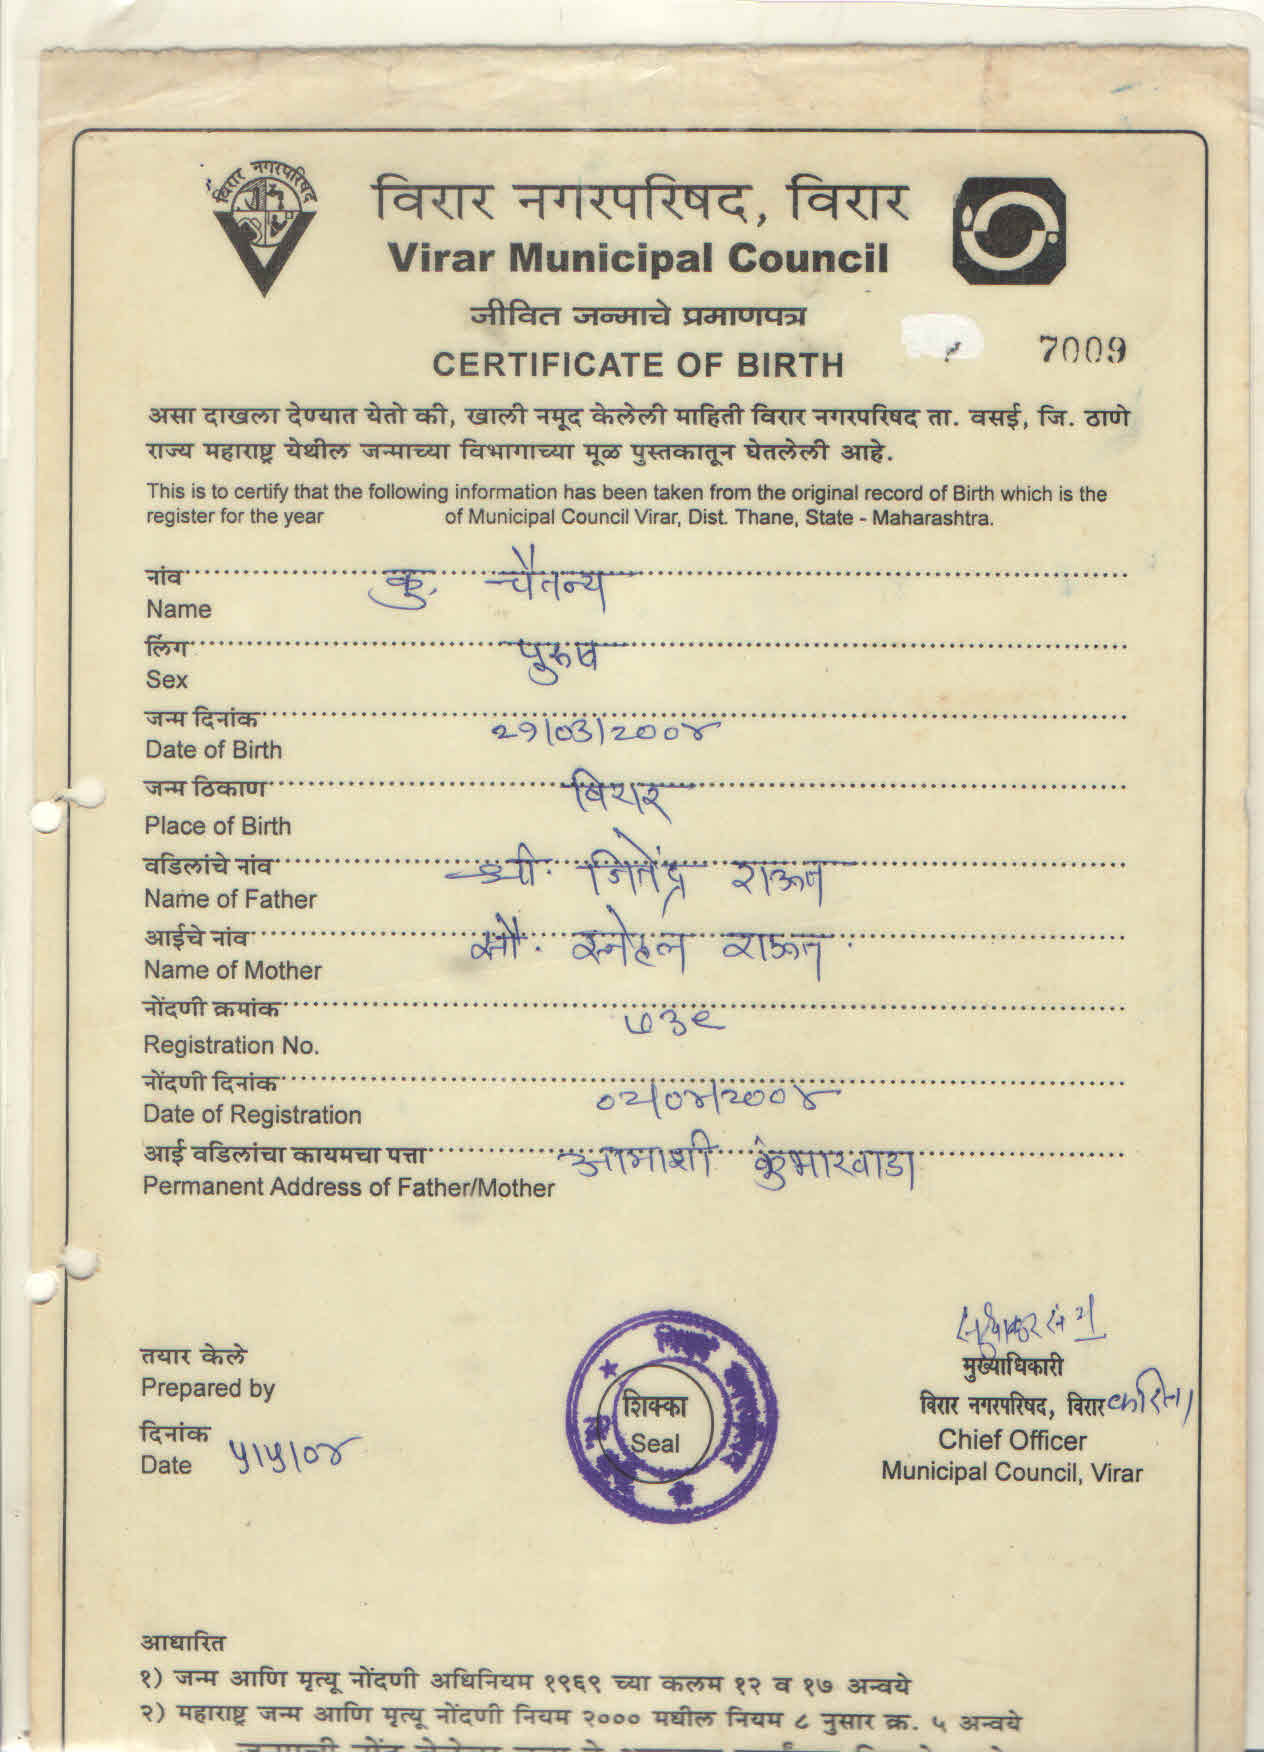 विरार नगरपरिषद
विरार नगरपरिषद, विरार
Virar Municipal Council
जीवित जन्माचे प्रमाणपत्र
CERTIFICATE OF BIRTH
7009
असा दाखला देण्यात येतो की, खाली नमूद केलेली माहिती विरार नगरपरिषद ता. वसई, जि. ठाणे
राज्य महाराष्ट्र येथील जन्माच्या विभागाच्या मूळ पुस्तकातून घेतलेली आहे.
This is to certify that the following information has been taken from the original record of Birth which is the
register for the year of Municipal Council Virar, Dist. Thane, State - Maharashtra.
नांव कु. चैतन्य
Name
लिंग पुरुष
Sex
जन्म दिनांक २९/०३/२००४
Date of Birth
जन्म ठिकाण विरार
Place of Birth
वडिलांचे नांव श्री. जितेंद्र राऊत
Name of Father
आईचे नांव सौ. स्नेहल राऊत
Name of Mother
नोंदणी क्रमांक ७३९
Registration No.
नोंदणी दिनांक ०२/०४/२००४
Date of Registration
आई वडिलांचा कायमचा पत्ता आगाशी कुंभारवाडा
Permanent Address of Father/Mother
तयार केले
Prepared by
दिनांक
Date ५/५/०४
शिक्का
Seal
मुख्याधिकारी
विरार नगरपरिषद, विरार करिता
Chief Officer
Municipal Council, Virar
आधारित
१) जन्म आणि मृत्यू नोंदणी अधिनियम १९६९ च्या कलम १२ व १७ अन्वये
२) महाराष्ट्र जन्म आणि मृत्यू नोंदणी नियम २००० मधील नियम ८ नुसार क्र. ५ अन्वये